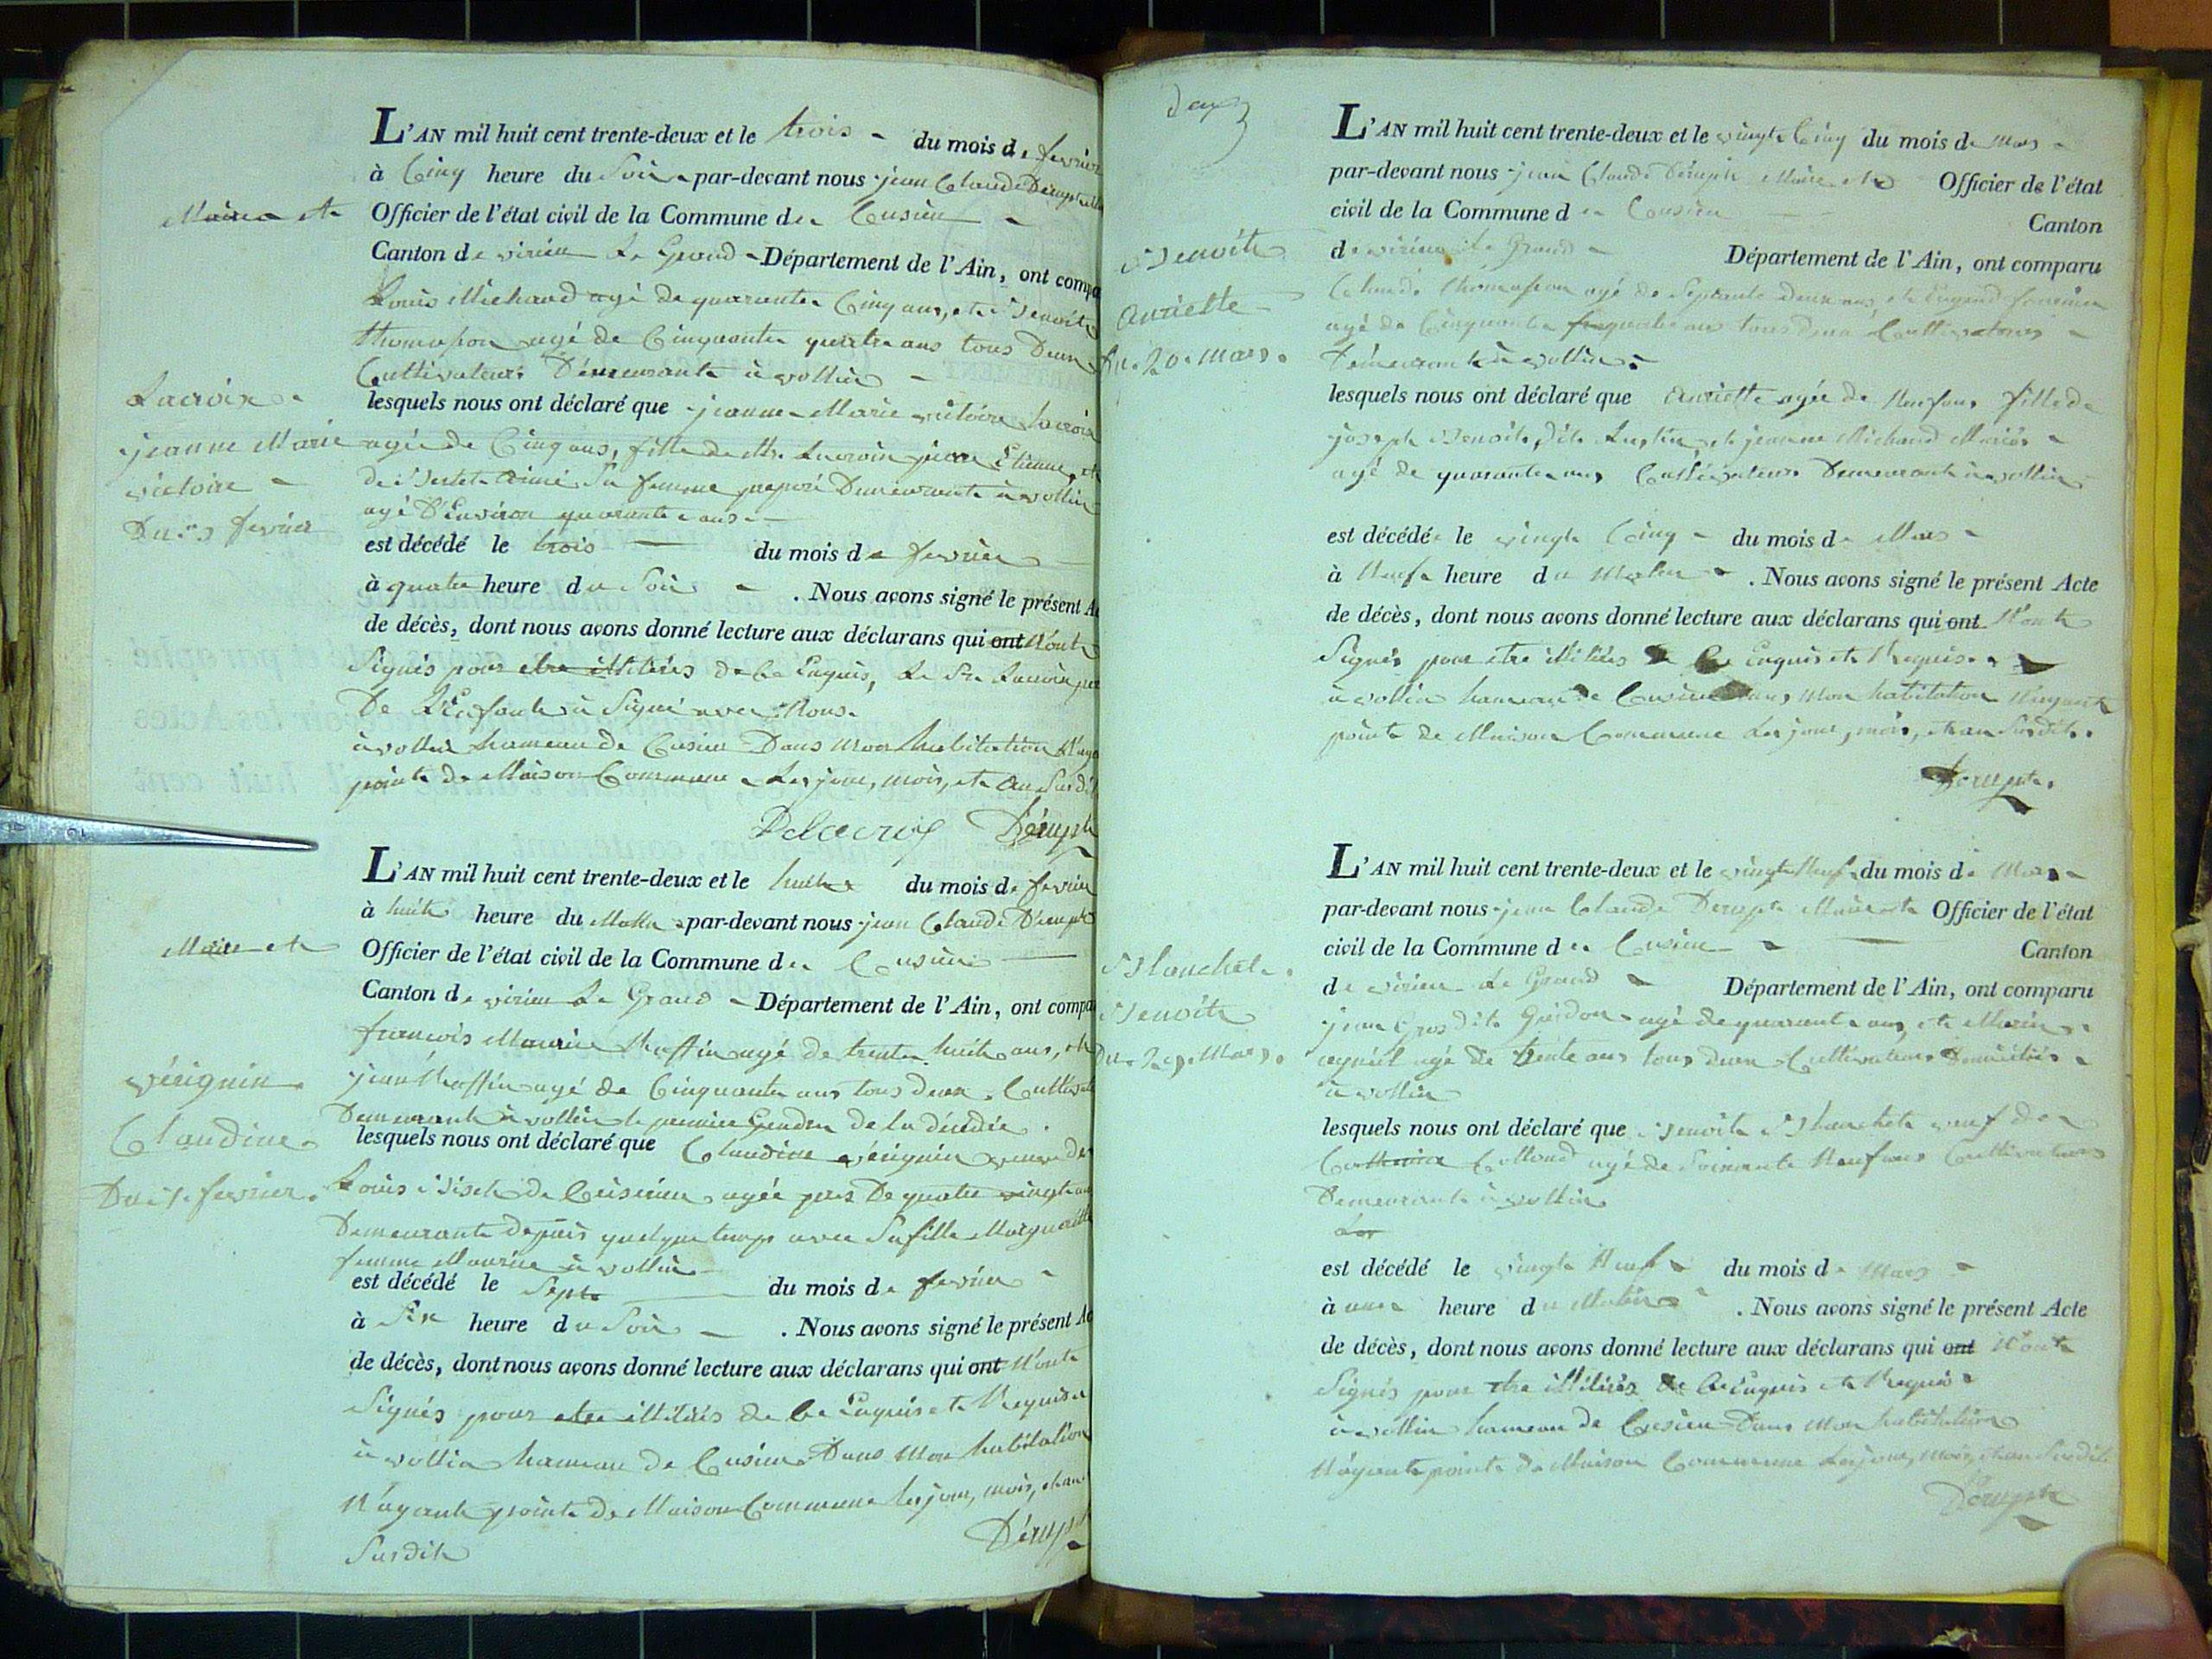 L'AN mil huit cent trente-deux et le trois du mois de fevrier
à Cinq heure du Soir par-devant nous jean Claude Dérupt
Maire et
Officier de l'état civil de la Commune de Cusieu
Canton de virieu Le Grand Département de l'Ain, ont compa
Louis Michaud agé de quarante Cinq ans, et Benoit
thomasson agé de Cinquante quatre ans tous Deux
Cultivateurs Démeurant à vollin
Lacroix
jeanne Marie
victoire
Du 3 fevrier
lesquels nous ont déclaré que jeanne Marie victoire Lacroix
agée de Cinq ans, fille de Mr. Lacroix pierre Etienne, et
de aimé Sa femme preposé Demeurant à vollin
agé D'Environ quarante ans
est décédé le trois du mois de fevrier
à quatre heure du Soir . Nous avons signé le présent A
de décès, dont nous avons donné lecture aux déclarans qui ont N'ont
Signés pour etre illitérés de Ce Enquis, Le Sr. Lacroix per
De L'Enfant à Signé avec Nous.
à vollin hameau de Cusieu Dans mon habitation N'aya
point de Maison Commune Les jour, mois, et an Susdit
Delacroix Dérupt
L'AN mil huit cent trente-deux et le huit du mois de fevrier
à huit heure du Matin par-devant nous jean Claude Dérupt
Maire et
Officier de l'état civil de la Commune de Cusieu
Canton de virieu Le Grand Département de l'Ain, ont compa
françois Maurice Ruffin agé de trente huit ans, et
jean Ruffin agé de Cinquante ans tous deux Cultivat
Demeurant à vollin le premier Gendre de la décédée
vériguin
Claudine
Du 7 fevrier.
lesquels nous ont déclaré que Claudine vériguin veuve de
Louis de Cusieu agée pres De quatre vingt ans
Demeurante depuis quelque temps avec Sa fille Marguerite
femme Maurice à vollin
est décédé le Sept du mois de fevrier
à Six heure du Soir . Nous avons signé le présent Ac
de décès, dont nous avons donné lecture aux déclarans qui ont N'ont
Signés pour etre illitérés de Ce Enquis et Requis
à vollin hameau de Cusieu Dans Mon habitation
N'ayant point de Maison Commune Les jour, mois, et an
Susdit
Dérupt
deux
L'AN mil huit cent trente-deux et le vingt Cinq du mois de Mars
par-devant nous jean Claude Dérupt Maire et Officier de l'état
civil de la Commune de Cusieu Canton
de virieu Le Grand Département de l'Ain, ont comparu
Benoit
Anriette
Du 25 Mars.
Claude thomasson agé de Septante deux ans, et
agé de Cinquante quatre ans tous deux Cultivateurs
Démeurant à vollin
lesquels nous ont déclaré que Anriette agée de Neuf ans fille de
joseph Benoit, dit et jeanne Michaud Mariés
agé de quarante ans Cultivateurs Demeurant à vollin
est décédée le vingt Cinq du mois de Mars
à Neuf heure du Matin . Nous avons signé le présent Acte
de décès, dont nous avons donné lecture aux déclarans qui ont N'ont
Signés pour etre illitérés de Ce Enquis et Requis
à vollin hameau de Cusieu Dans Mon habitation N'ayant
point de Maison Commune Les jour, mois, et an Susdit
Dérupt.
L'AN mil huit cent trente-deux et le vingt Neuf du mois de Mars
par-devant nous jean Claude Dérupt Maire et Officier de l'état
civil de la Commune de Cusieu Canton
de virieu Le Grand Département de l'Ain, ont comparu
Blanchet
Benoit
Du 29 Mars.
jean Gros dit Guidon agé de quarante ans, et
agé de trente ans tous deux Cultivateurs Domiciliés
à vollin
lesquels nous ont déclaré que Benoit Blanchet veuf de
Colloud agé de Soixante Neuf ans Cultivateur
Demeurant à vollin
est décédé le vingt Neuf du mois de Mars
à une heure du Matin . Nous avons signé le présent Acte
de décès, dont nous avons donné lecture aux déclarans qui ont N'ont
Signés pour etre illitérés de Ce Enquis et Requis
à vollin hameau de Cusieu Dans Mon habitation
N'ayant point de Maison Commune Les jour, mois, et an Susdit
Dérupt